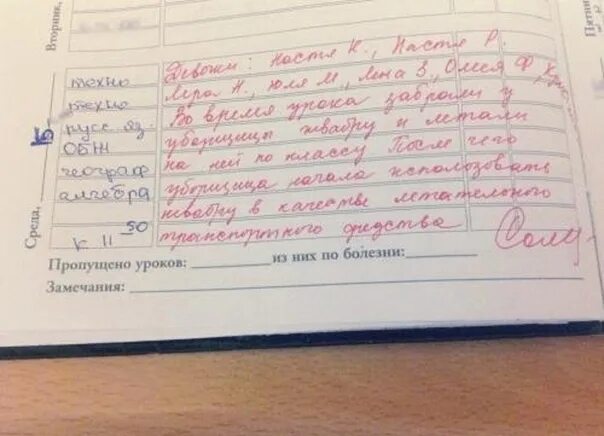 Вторник,
Пятни
Среда,
15
техно
техно
русс. яз.
ОБЖ
географ
алгебра
к 11 50
Девочки: Настя К., Настя Р.
Лера А., Юля М, Лена З, Олеся Ф,
Во время урока забрали у
уборщицы швабру и летали
на ней по классу После чего
уборщица начала использовать
швабру в качестве летательного
транспортного средства
Пропущено уроков: из них по болезни:
Замечания: